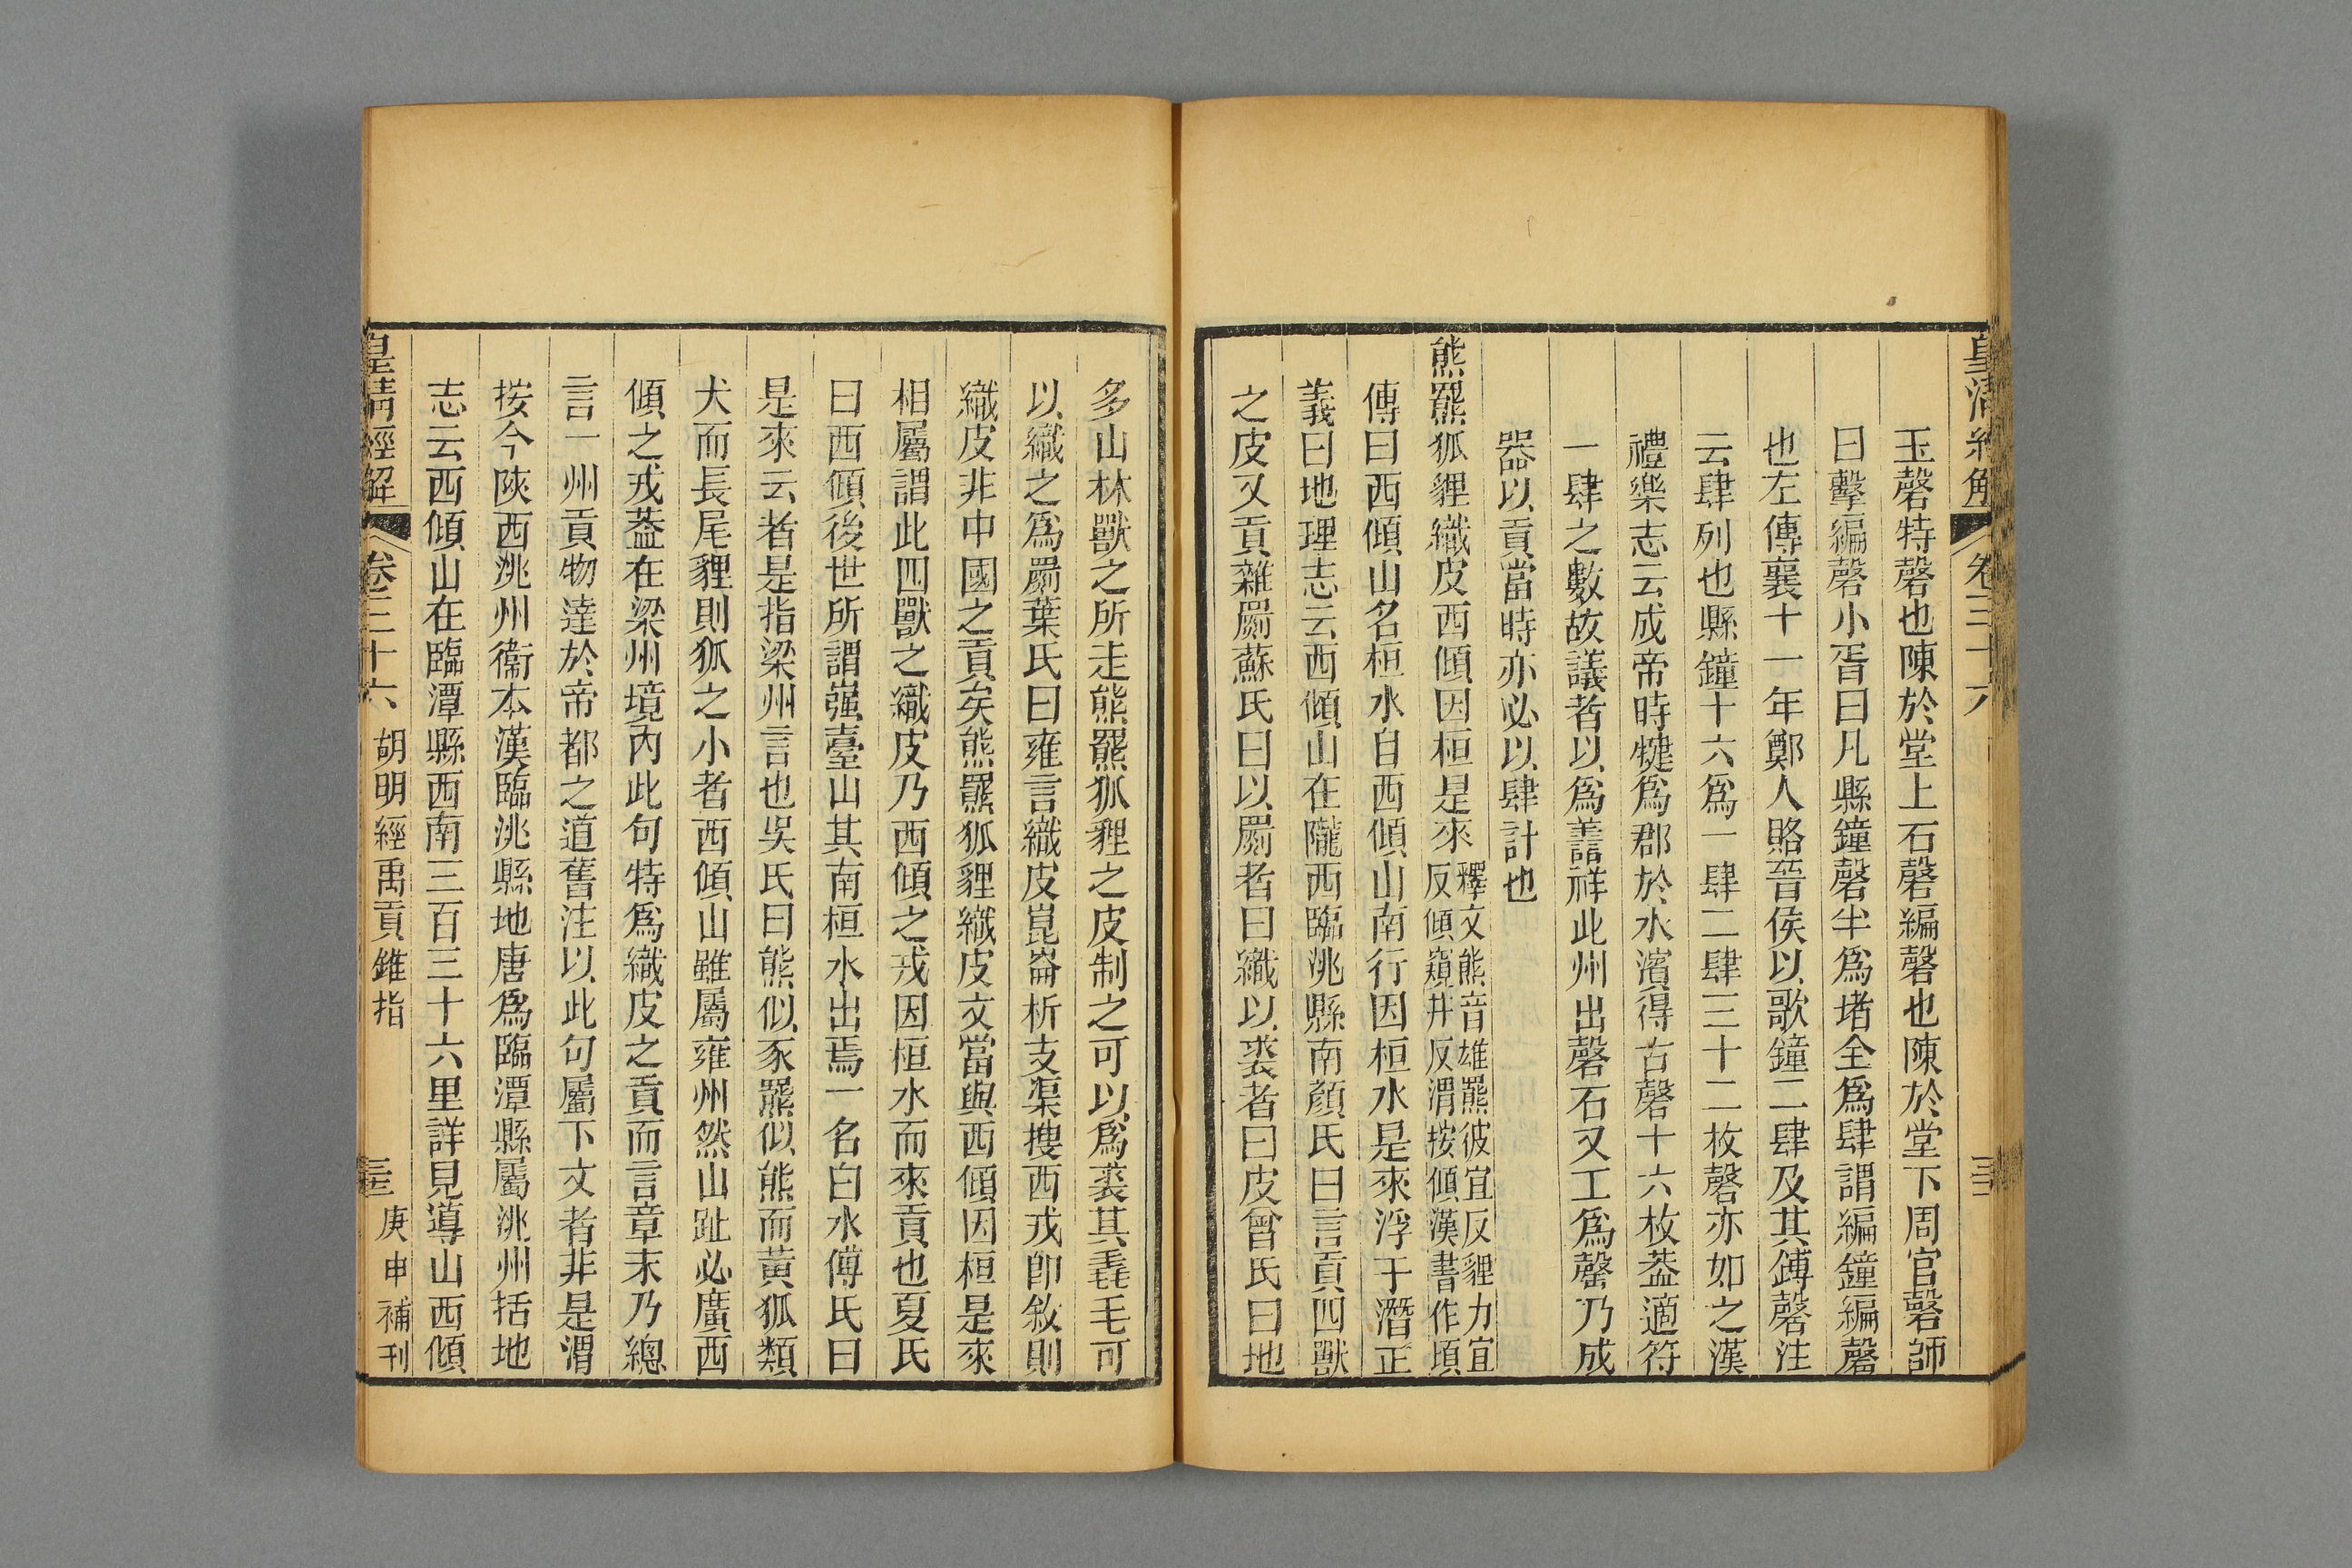 皇清經解 卷三十六
玉磬特磬也陳於堂上石磬編磬也陳於堂下周官磬師
曰擊編磬小胥曰凡縣鐘磬半爲堵全爲肆謂編鐘編磬
也左傳襄十一年鄭人賂晉侯以歌鐘二肆及其鎛磬注
云肆列也縣鐘十六爲一肆二肆三十二枚磬亦如之漢
禮樂志云成帝時犍爲郡於水濱得古磬十六枚葢適符
一肆之數故議者以爲善祥此州出磬石又工爲磬乃成
器以貢當時亦必以肆計也
熊羆狐貍織皮西傾因桓是來釋文熊音雄羆彼宜反貍力宜反傾窺井反渭按傾漢書作頃
傳曰西傾山名桓水自西傾山南行因桓水是來浮于潛正
義曰地理志云西傾山在隴西臨洮縣南顏氏曰言貢四獸
之皮又貢雜罽蘇氏曰以罽者曰織以裘者曰皮曾氏曰地
多山林獸之所走熊羆狐貍之皮制之可以爲裘其毳毛可
以織之爲罽葉氏曰雍言織皮崑崙析支渠搜西戎卽敘則
織皮非中國之貢矣熊羆狐貍織皮文當與西傾因桓是來
相屬謂此四獸之織皮乃西傾之戎因桓水而來貢也夏氏
曰西傾後世所謂嵹臺山其南桓水出焉一名白水傅氏曰
是來云者是指梁州言也吳氏曰熊似豕羆似熊而黃狐類
犬而長尾貍則狐之小者西傾山雖屬雍州然山趾必廣西
傾之戎葢在梁州境內此句特爲織皮之貢而言章末乃總
言一州貢物達於帝都之道舊注以此句屬下文者非是渭
按今陝西洮州衞本漢臨洮縣地唐爲臨潭縣屬洮州括地
志云西傾山在臨潭縣西南三百三十六里詳見導山西傾
皇清經解 卷三十六 胡明經禹貢錐指 庚申補刊